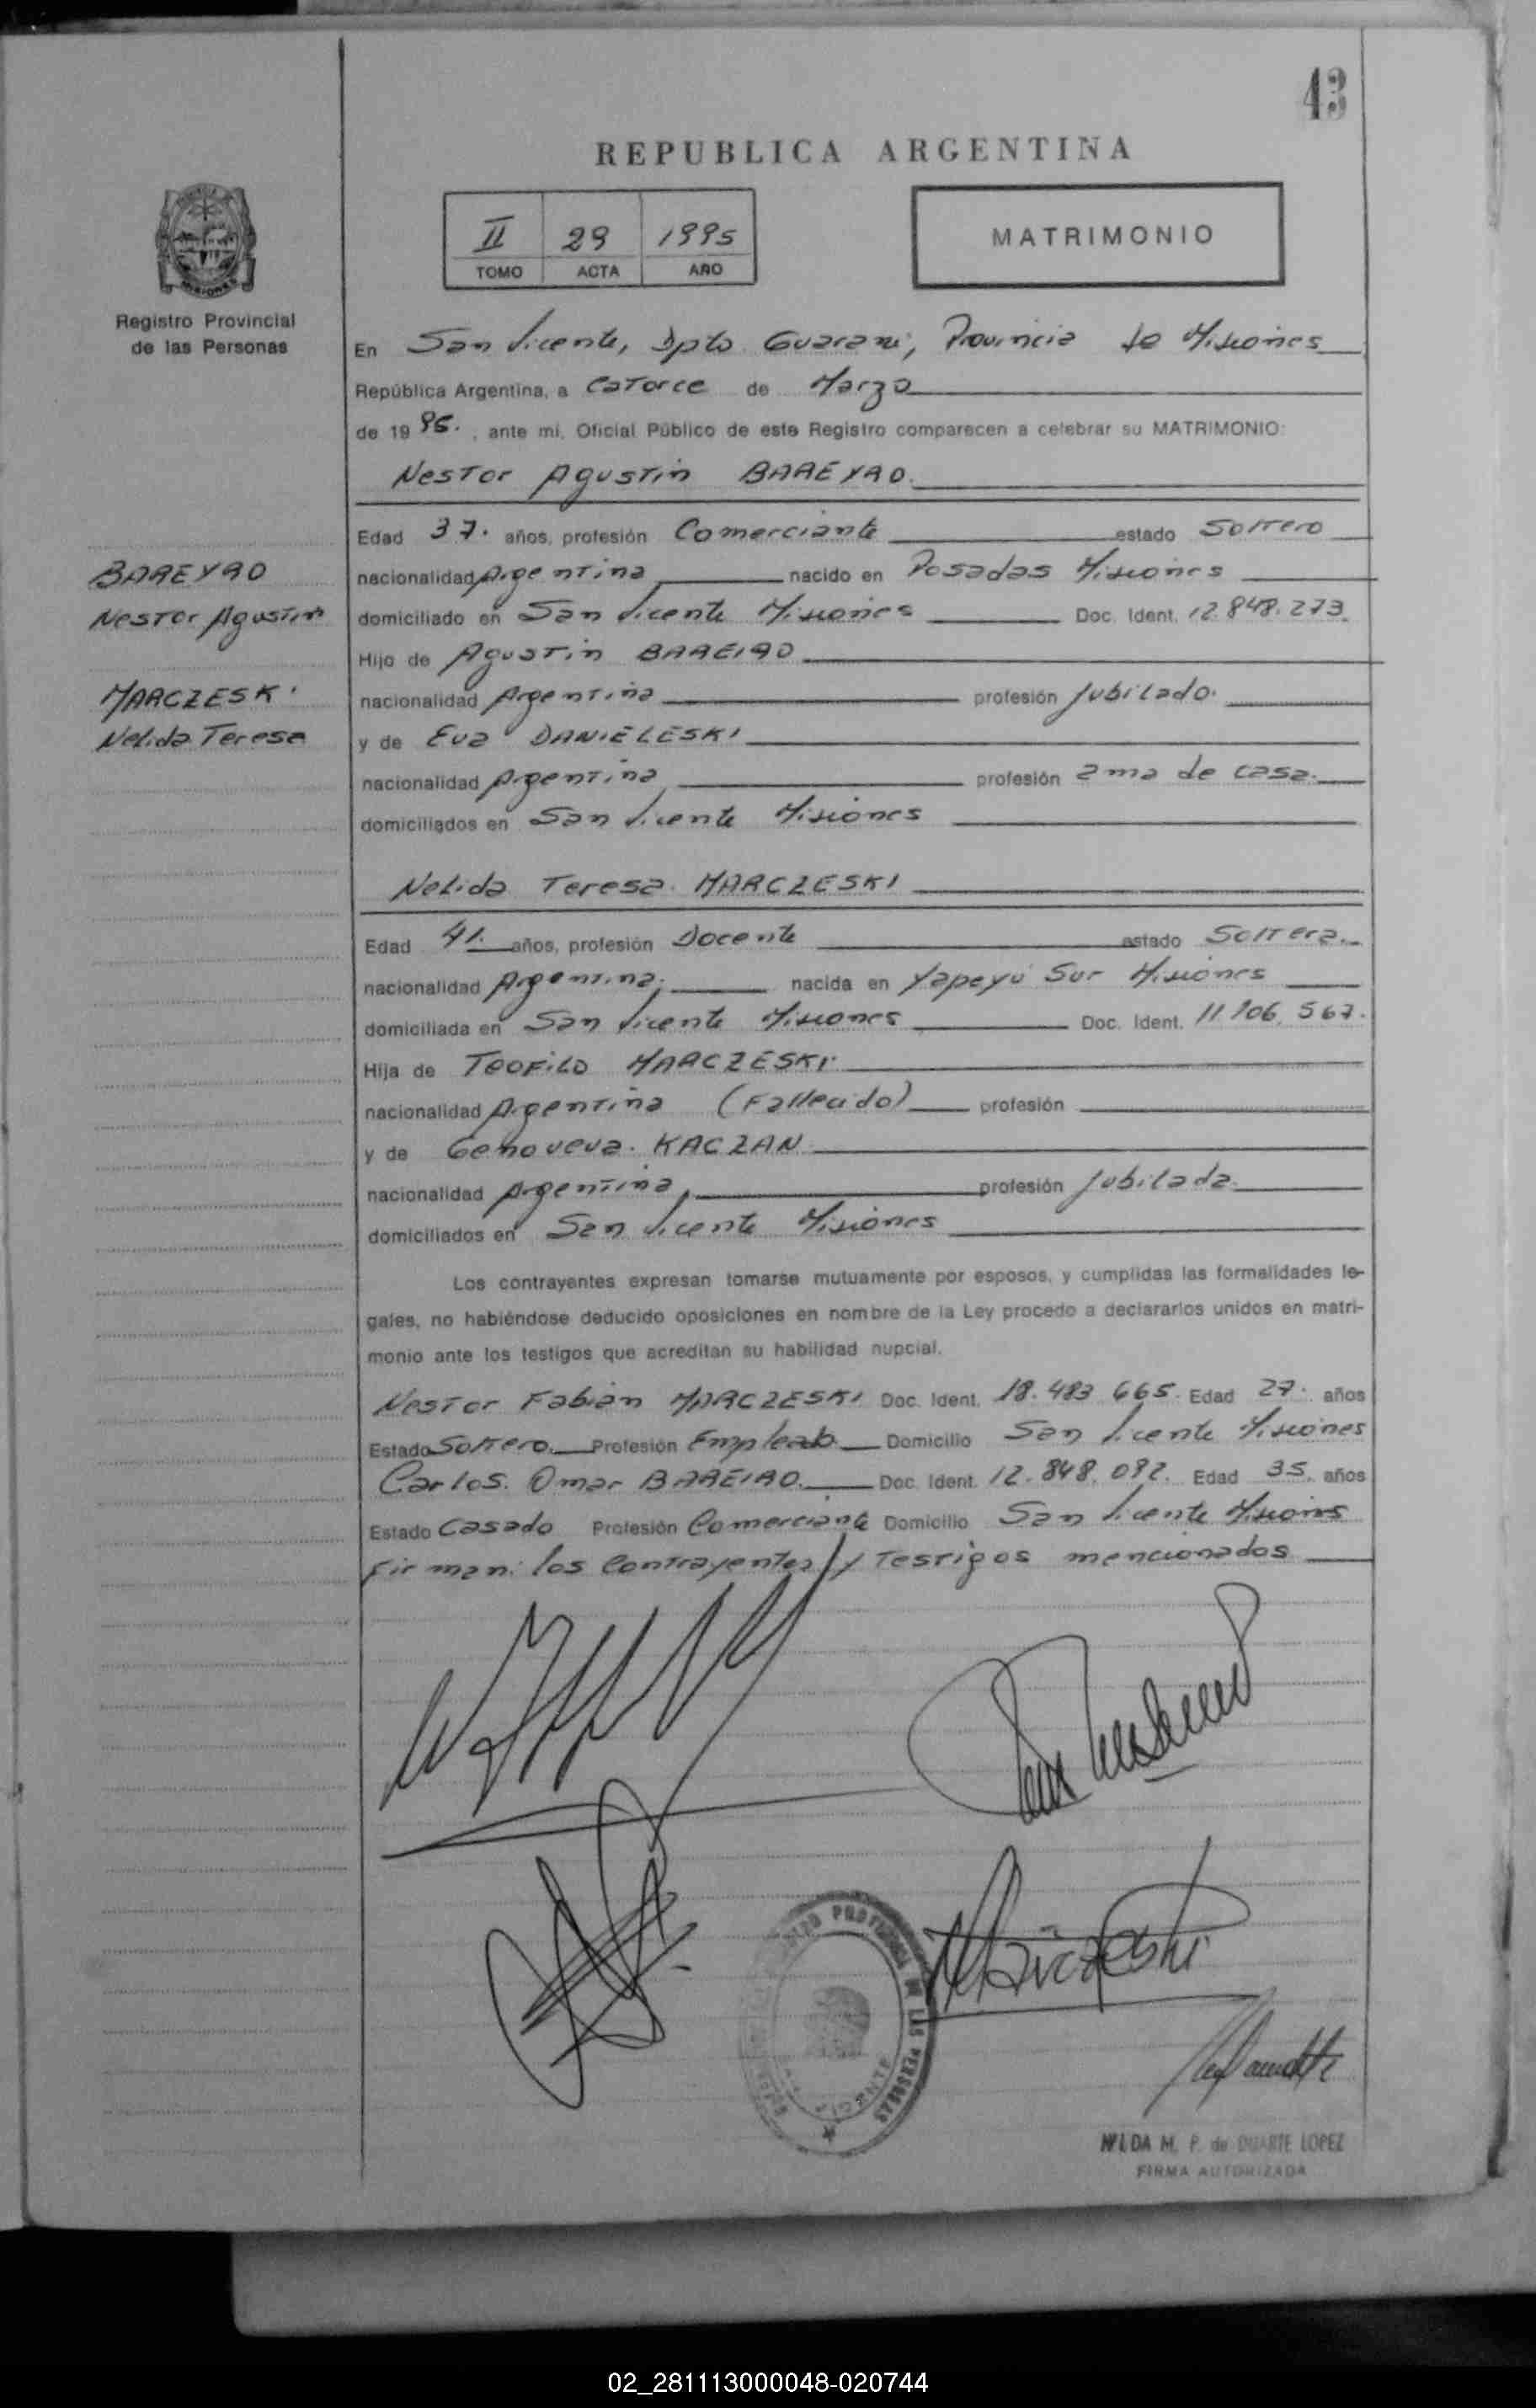 43
REPUBLICA ARGENTINA
II 29 1995
TOMO ACTA AÑO
MATRIMONIO
MISIONES
Registro Provincial
de las Personas
En San Vicente, Dpto Guarani, Provincia de Misiones
República Argentina, a Catorce de Marzo
de 19 95. , ante mi, Oficial Público de este Registro comparecen a celebrar su MATRIMONIO:
Nestor Agustin BAREYRO.
Edad 37. años, profesión Comerciante estado Soltero
nacionalidad Argentina nacido en Posadas Misiones
domiciliado en San Vicente Misiones Doc. Ident. 12.848.273.
Hijo de Agustin BAREIRO
nacionalidad Argentina profesión Jubilado.
y de Eva DANIELESKI
nacionalidad Argentina profesión ama de casa.
domiciliados en San Vicente Misiones
BAREYRO
Nestor Agustin
MARCZESKI
Nelida Teresa
Nelida Teresa MARCZESKI
Edad 41. años, profesión Docente estado Soltera.
nacionalidad Argentina. nacida en Yapeyú Sur Misiones
domiciliada en San Vicente Misiones Doc. Ident. 11.106.567.
Hija de Teofilo MARCZESKI
nacionalidad Argentina (Fallecido) profesión
y de Genoveva KACZAN
nacionalidad Argentina profesión Jubilada.
domiciliados en San Vicente Misiones
Los contrayentes expresan tomarse mutuamente por esposos, y cumplidas las formalidades le-
gales, no habiéndose deducido oposiciones en nombre de la Ley procedo a declararlos unidos en matri-
monio ante los testigos que acreditan su habilidad nupcial.
Nestor Fabián MARCZESKI Doc. Ident. 18.483.665. Edad 27. años
Estado Soltero. Profesión Empleado Domicilio San Vicente Misiones
Carlos Omar BAREIRO. Doc. Ident. 12.848.092. Edad 35. años
Estado Casado Profesión Comerciante Domicilio San Vicente Misiones
Firman: los Contrayentes y Testigos mencionados
Marczeski
PROVINCIAL DE LAS PERSONAS
HILDA M. P. de DUARTE LOPEZ
FIRMA AUTORIZADA
02_281113000048-020744